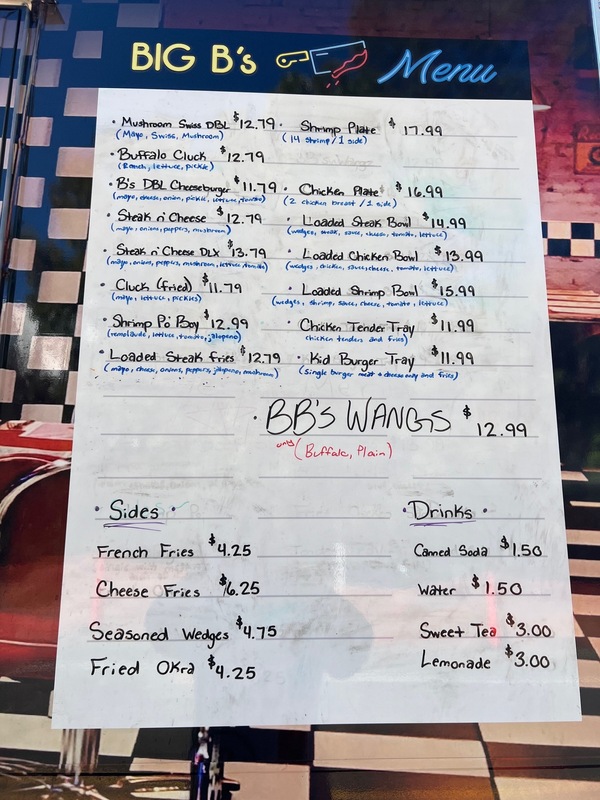 BIG B's Menu
• Mushroom Swiss DBL $12.79
(Mayo, Swiss, Mushroom)
• Buffalo Cluck $12.79
(Ranch, lettuce, pickle)
• B's DBL Cheeseburger $11.79
(mayo, cheese, onion, pickle, lettuce, tomato)
• Steak n' Cheese $12.79
(mayo, onions, peppers, mushroom)
• Steak n' Cheese DLX $13.79
(mayo, onions, peppers, mushroom, lettuce, tomato)
• Cluck (fried) $11.79
(mayo, lettuce, pickles)
• Shrimp Po' Boy $12.99
(remoulade, lettuce, tomato, jalapeno)
• Loaded Steak Fries $12.79
(mayo, cheese, onions, peppers, jalapeno, mushroom)
• Shrimp Plate $17.99
(14 shrimp / 1 side)
• Chicken Plate $16.99
(2 chicken breast / 1 side)
• Loaded Steak Bowl $14.99
(wedges, steak, sauce, cheese, tomato, lettuce)
• Loaded Chicken Bowl $13.99
(wedges, chicken, sauce, cheese, tomato, lettuce)
• Loaded Shrimp Bowl $15.99
(wedges, shrimp, sauce, cheese, tomato, lettuce)
• Chicken Tender Tray $11.99
chicken tenders and fries)
• Kid Burger Tray $11.99
(Single burger meat & cheese only and fries)
• BB'S WANGS $12.99
only (Buffalo, Plain)
• Sides •
French Fries $4.25
Cheese Fries $6.25
Seasoned Wedges $4.75
Fried Okra $4.25
• Drinks •
Canned Soda $1.50
Water $1.50
Sweet Tea $3.00
Lemonade $3.00